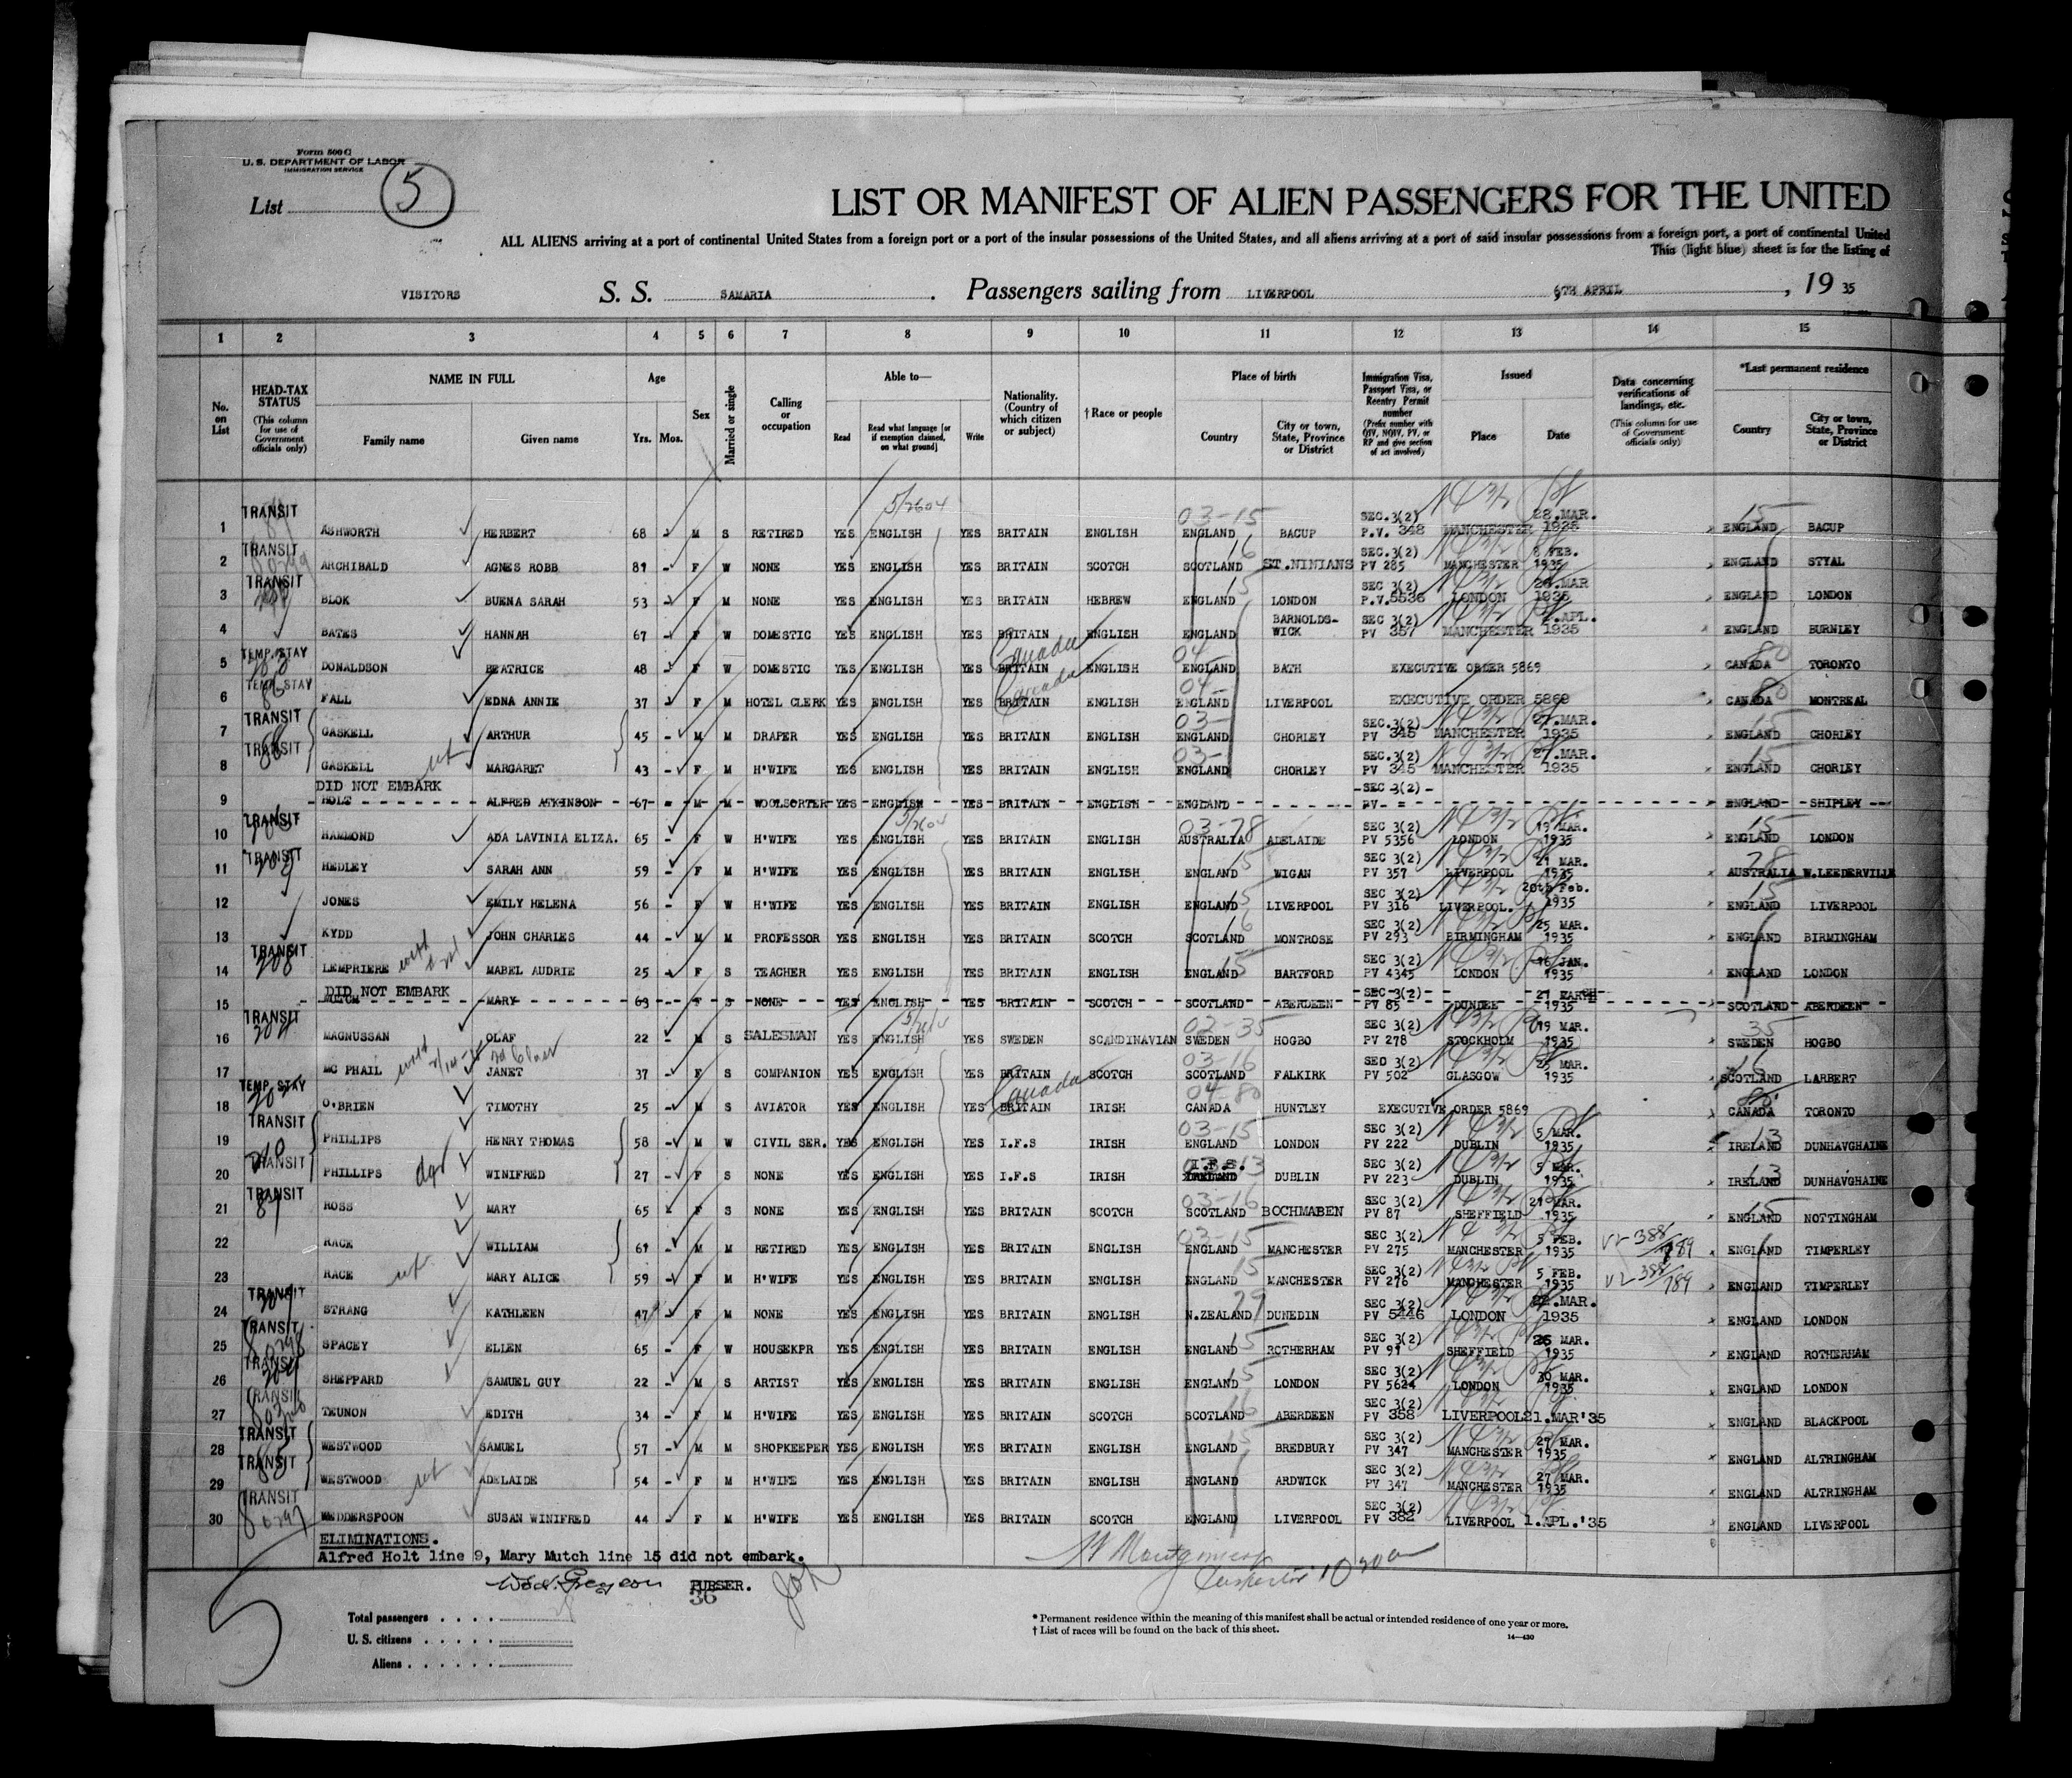 Form 500 C
U. S. DEPARTMENT OF LABOR
IMMIGRATION SERVICE
List 5
LIST OR MANIFEST OF ALIEN PASSENGERS FOR THE UNITED
ALL ALIENS arriving at a port of continental United States from a foreign port or a port of the insular possessions of the United States, and all aliens arriving at a port of said insular possessions from a foreign port, a port of continental United
This (light blue) sheet is for the listing of
VISITORS S. S. SAMARIA. Passengers sailing from LIVERPOOL 6TH APRIL, 19 35
1 2 3 4 5 6 7 8 9 10 11 12 13 14 15
No. on List
HEAD-TAX STATUS (This column for use of Government officials only)
NAME IN FULL Family name Given name
Age Yrs. Mos.
Sex
Married or single
Calling or occupation
Able to— Read Read what language [or if exemption claimed, on what ground] Write
Nationality. (Country of which citizen or subject)
† Race or people
Place of birth Country City or town, State, Province or District
Immigration Visa, Passport Visa, or Reentry Permit number (Prefix number with QIV, NQIV, PV, or RP and give section of act involved)
Issued Place Date
Data concerning verifications of landings, etc. (This column for use of Government officials only)
*Last permanent residence Country City or town, State, Province or District
1 TRANSIT ASHWORTH HERBERT 68 - M S RETIRED YES ENGLISH YES BRITAIN ENGLISH ENGLAND BACUP SEC.3(2) P.V. 348 MANCHESTER 28.MAR. 1935 ENGLAND BACUP
2 TRANSIT ARCHIBALD AGNES ROBB 81 - F W NONE YES ENGLISH YES BRITAIN SCOTCH SCOTLAND ST.NINIANS SEC.3(2) PV 285 MANCHESTER 8 FEB. 1935 ENGLAND STYAL
3 TRANSIT BLOK BUENA SARAH 53 - F M NONE YES ENGLISH YES BRITAIN HEBREW ENGLAND LONDON SEC 3(2) P.V.5536 LONDON MAR 1935 ENGLAND LONDON
4 BATES HANNAH 67 - F W DOMESTIC YES ENGLISH YES BRITAIN ENGLISH ENGLAND BARNOLDS-WICK SEC 3(2) PV 357 MANCHESTER APL. 1935 ENGLAND BURNLEY
5 TEMP. STAY DONALDSON BEATRICE 48 - F W DOMESTIC YES ENGLISH YES BRITAIN Canada ENGLISH ENGLAND BATH EXECUTIVE ORDER 5869 CANADA TORONTO
6 TEMP. STAY FALL EDNA ANNIE 37 - F M HOTEL CLERK YES ENGLISH YES BRITAIN Canada ENGLISH ENGLAND LIVERPOOL EXECUTIVE ORDER 5869 CANADA MONTREAL
7 TRANSIT GASKELL ARTHUR 45 - M M DRAPER YES ENGLISH YES BRITAIN ENGLISH ENGLAND CHORLEY SEC.3(2) PV 345 MANCHESTER 27.MAR. 1935 ENGLAND CHORLEY
8 TRANSIT GASKELL MARGARET 43 - F M H'WIFE YES ENGLISH YES BRITAIN ENGLISH ENGLAND CHORLEY SEC.3(2) PV 345 MANCHESTER 27.MAR. 1935 ENGLAND CHORLEY
DID NOT EMBARK
9 HOLT ALFRED ATKINSON 67 - M M WOOLSORTER YES ENGLISH YES BRITAIN ENGLISH ENGLAND SEC 3(2) PV - ENGLAND SHIPLEY
10 TRANSIT HAMMOND ADA LAVINIA ELIZA. 65 - F W H'WIFE YES ENGLISH YES BRITAIN ENGLISH AUSTRALIA ADELAIDE SEC 3(2) PV 5356 LONDON 19 MAR. 1935 ENGLAND LONDON
11 TRANSIT HEDLEY SARAH ANN 59 - F M H'WIFE YES ENGLISH YES BRITAIN ENGLISH ENGLAND WIGAN SEC 3(2) PV 357 LIVERPOOL 21 MAR. 1935 AUSTRALIA W.LEEDERVILLE
12 JONES EMILY HELENA 56 - F W H'WIFE YES ENGLISH YES BRITAIN ENGLISH ENGLAND LIVERPOOL SEC 3(2) PV 316 LIVERPOOL. 20th Feb. 1935 ENGLAND LIVERPOOL
13 KYDD JOHN CHARLES 44 - M M PROFESSOR YES ENGLISH YES BRITAIN SCOTCH SCOTLAND MONTROSE SEC 3(2) PV 293 BIRMINGHAM 25 MAR. 1935 ENGLAND BIRMINGHAM
14 TRANSIT 208 LEMPRIERE MABEL AUDRIE 25 - F S TEACHER YES ENGLISH YES BRITAIN ENGLISH ENGLAND BARTFORD SEC 3(2) PV 4345 LONDON 16 JAN. 1935 ENGLAND LONDON
DID NOT EMBARK
15 MUTCH MARY 63 - F S NONE YES ENGLISH YES BRITAIN SCOTCH SCOTLAND ABERDEEN SEC 3(2) PV 85 DUNDEE 1935 SCOTLAND ABERDEEN
16 TRANSIT MAGNUSSAN OLAF 22 - M S SALESMAN YES ENGLISH YES SWEDEN SCANDINAVIAN SWEDEN HOGBO SEC 3(2) PV 278 STOCKHOLM 19 MAR. 1935 SWEDEN HOGBO
17 MC PHAIL JANET 37 - F S COMPANION YES ENGLISH YES BRITAIN SCOTCH SCOTLAND FALKIRK SEC 3(2) PV 502 GLASGOW 25 MAR. 1935 SCOTLAND LARBERT
18 TEMP. STAY O'BRIEN TIMOTHY 25 - M S AVIATOR YES ENGLISH YES BRITAIN Canada IRISH CANADA HUNTLEY EXECUTIVE ORDER 5869 CANADA TORONTO
19 TRANSIT PHILLIPS HENRY THOMAS 58 - M W CIVIL SER. YES ENGLISH YES I.F.S IRISH ENGLAND LONDON SEC 3(2) PV 222 DUBLIN 5 MAR. 1935 IRELAND DUNHAVGHAINE
20 TRANSIT PHILLIPS WINIFRED 27 - F S NONE YES ENGLISH YES I.F.S IRISH I.F.S. DUBLIN SEC 3(2) PV 223 DUBLIN 5 MAR. 1935 IRELAND DUNHAVGHAINE
21 TRANSIT ROSS MARY 65 F S NONE YES ENGLISH YES BRITAIN SCOTCH SCOTLAND BOCHMABEN SEC 3(2) PV 87 SHEFFIELD 21 MAR. 1935 ENGLAND NOTTINGHAM
22 RACE WILLIAM 61 - M M RETIRED YES ENGLISH YES BRITAIN ENGLISH ENGLAND MANCHESTER SEC 3(2) PV 275 MANCHESTER 5 FEB. 1935 ENGLAND TIMPERLEY
23 RACE MARY ALICE 59 - F M H'WIFE YES ENGLISH YES BRITAIN ENGLISH ENGLAND MANCHESTER SEC 3(2) PV 276 MANCHESTER 5 FEB. 1935 ENGLAND TIMPERLEY
24 TRANSIT STRANG KATHLEEN 47 - F M NONE YES ENGLISH YES BRITAIN ENGLISH N.ZEALAND DUNEDIN SEC 3(2) PV 5446 LONDON MAR. 1935 ENGLAND LONDON
25 TRANSIT SPACEY ELLEN 65 - F W HOUSEKPR YES ENGLISH YES BRITAIN ENGLISH ENGLAND ROTHERHAM SEC 3(2) PV 91 SHEFFIELD 26 MAR. 1935 ENGLAND ROTHERHAM
26 TRANSIT SHEPPARD SAMUEL GUY 22 - M S ARTIST YES ENGLISH YES BRITAIN ENGLISH ENGLAND LONDON SEC 3(2) PV 5624 LONDON 30 MAR. 1935 ENGLAND LONDON
27 TRANSIT TEUNON EDITH 34 - F M H'WIFE YES ENGLISH YES BRITAIN SCOTCH SCOTLAND ABERDEEN SEC 3(2) PV 358 LIVERPOOL 21.MAR'35 ENGLAND BLACKPOOL
28 TRANSIT WESTWOOD SAMUEL 57 - M M SHOPKEEPER YES ENGLISH YES BRITAIN ENGLISH ENGLAND BREDBURY SEC 3(2) PV 347 MANCHESTER 27 MAR. 1935 ENGLAND ALTRINGHAM
29 TRANSIT WESTWOOD ADELAIDE 54 - F M H'WIFE YES ENGLISH YES BRITAIN ENGLISH ENGLAND ARDWICK SEC 3(2) PV 347 MANCHESTER 27 MAR. 1935 ENGLAND ALTRINGHAM
30 TRANSIT WEDDERSPOON SUSAN WINIFRED 44 - F M H'WIFE YES ENGLISH YES BRITAIN SCOTCH ENGLAND LIVERPOOL SEC 3(2) PV 382 LIVERPOOL 1.APL.'35 ENGLAND LIVERPOOL
ELIMINATIONS.
Alfred Holt line 9, Mary Mutch line 15 did not embark.
PURSER.
36
Total passengers . . . .
U. S. citizens . . . . .
Aliens . . . . . .
* Permanent residence within the meaning of this manifest shall be actual or intended residence of one year or more.
† List of races will be found on the back of this sheet.
14—430
5